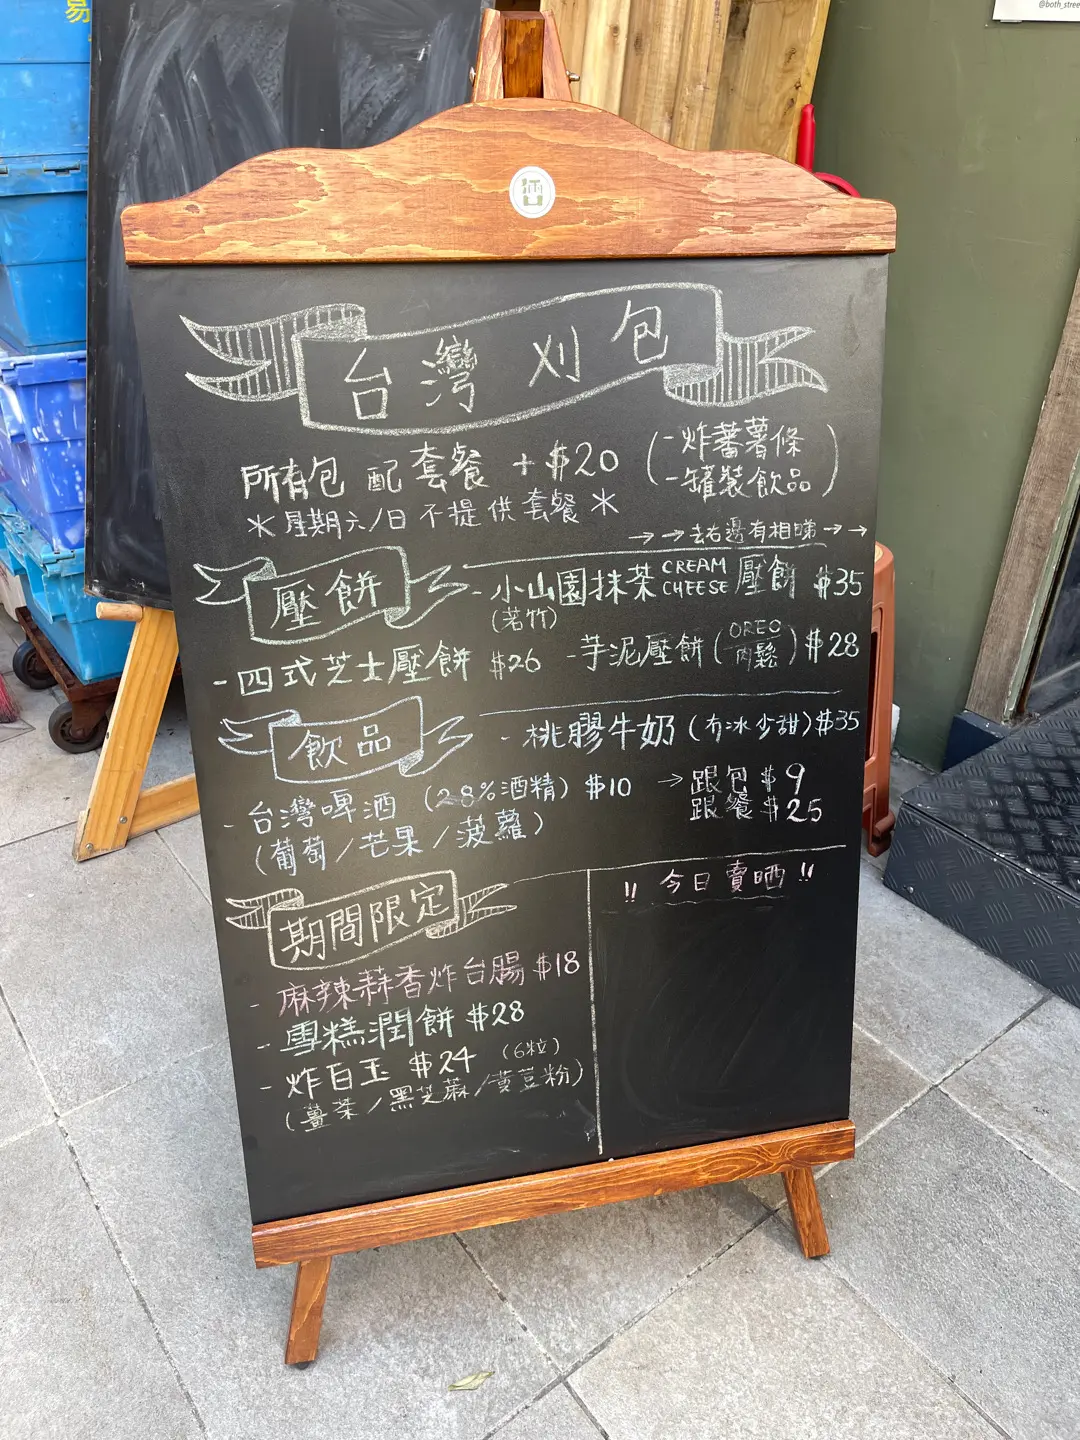 易
@both_stree
台灣刈包
所有包 配 套餐 +$20 (-炸蕃薯條
-罐裝飲品)
*星期六/日 不提供套餐*
→→去右邊有相睇→→
壓餅
-小山園抹茶 CREAM CHEESE 壓餅 $35
(若竹)
-四式芝士壓餅 $26
-芋泥壓餅(OREO 肉鬆) $28
飲品
-桃膠牛奶(冇冰少甜)$35
-台灣啤酒 (2.8%酒精) $10
(葡萄/芒果/菠蘿)
→跟包 $9
跟餐 $25
期間限定
-麻辣蒜香炸台腸 $18
-雪糕潤餅 $28
-炸白玉 $24 (6粒)
(薑茶/黑芝蔴/黄荳粉)
!! 今日賣晒 !!